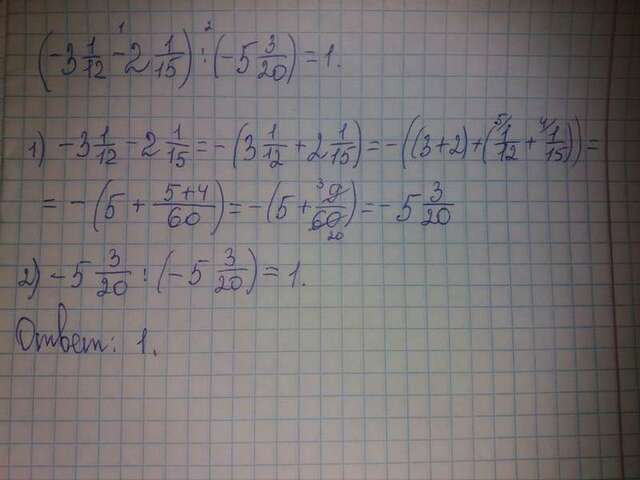 (-3 1/12 - 2 1/15) : (-5 3/20) = 1.
1) -3 1/12 - 2 1/15 = -(3 1/12 + 2 1/15) = -((3+2) + (5/ 1/12 + 4/ 1/15)) =
= -(5 + 5+4/60) = -(5 + 3 9/60 20) = -5 3/20
2) -5 3/20 : (-5 3/20) = 1.
Ответ: 1.